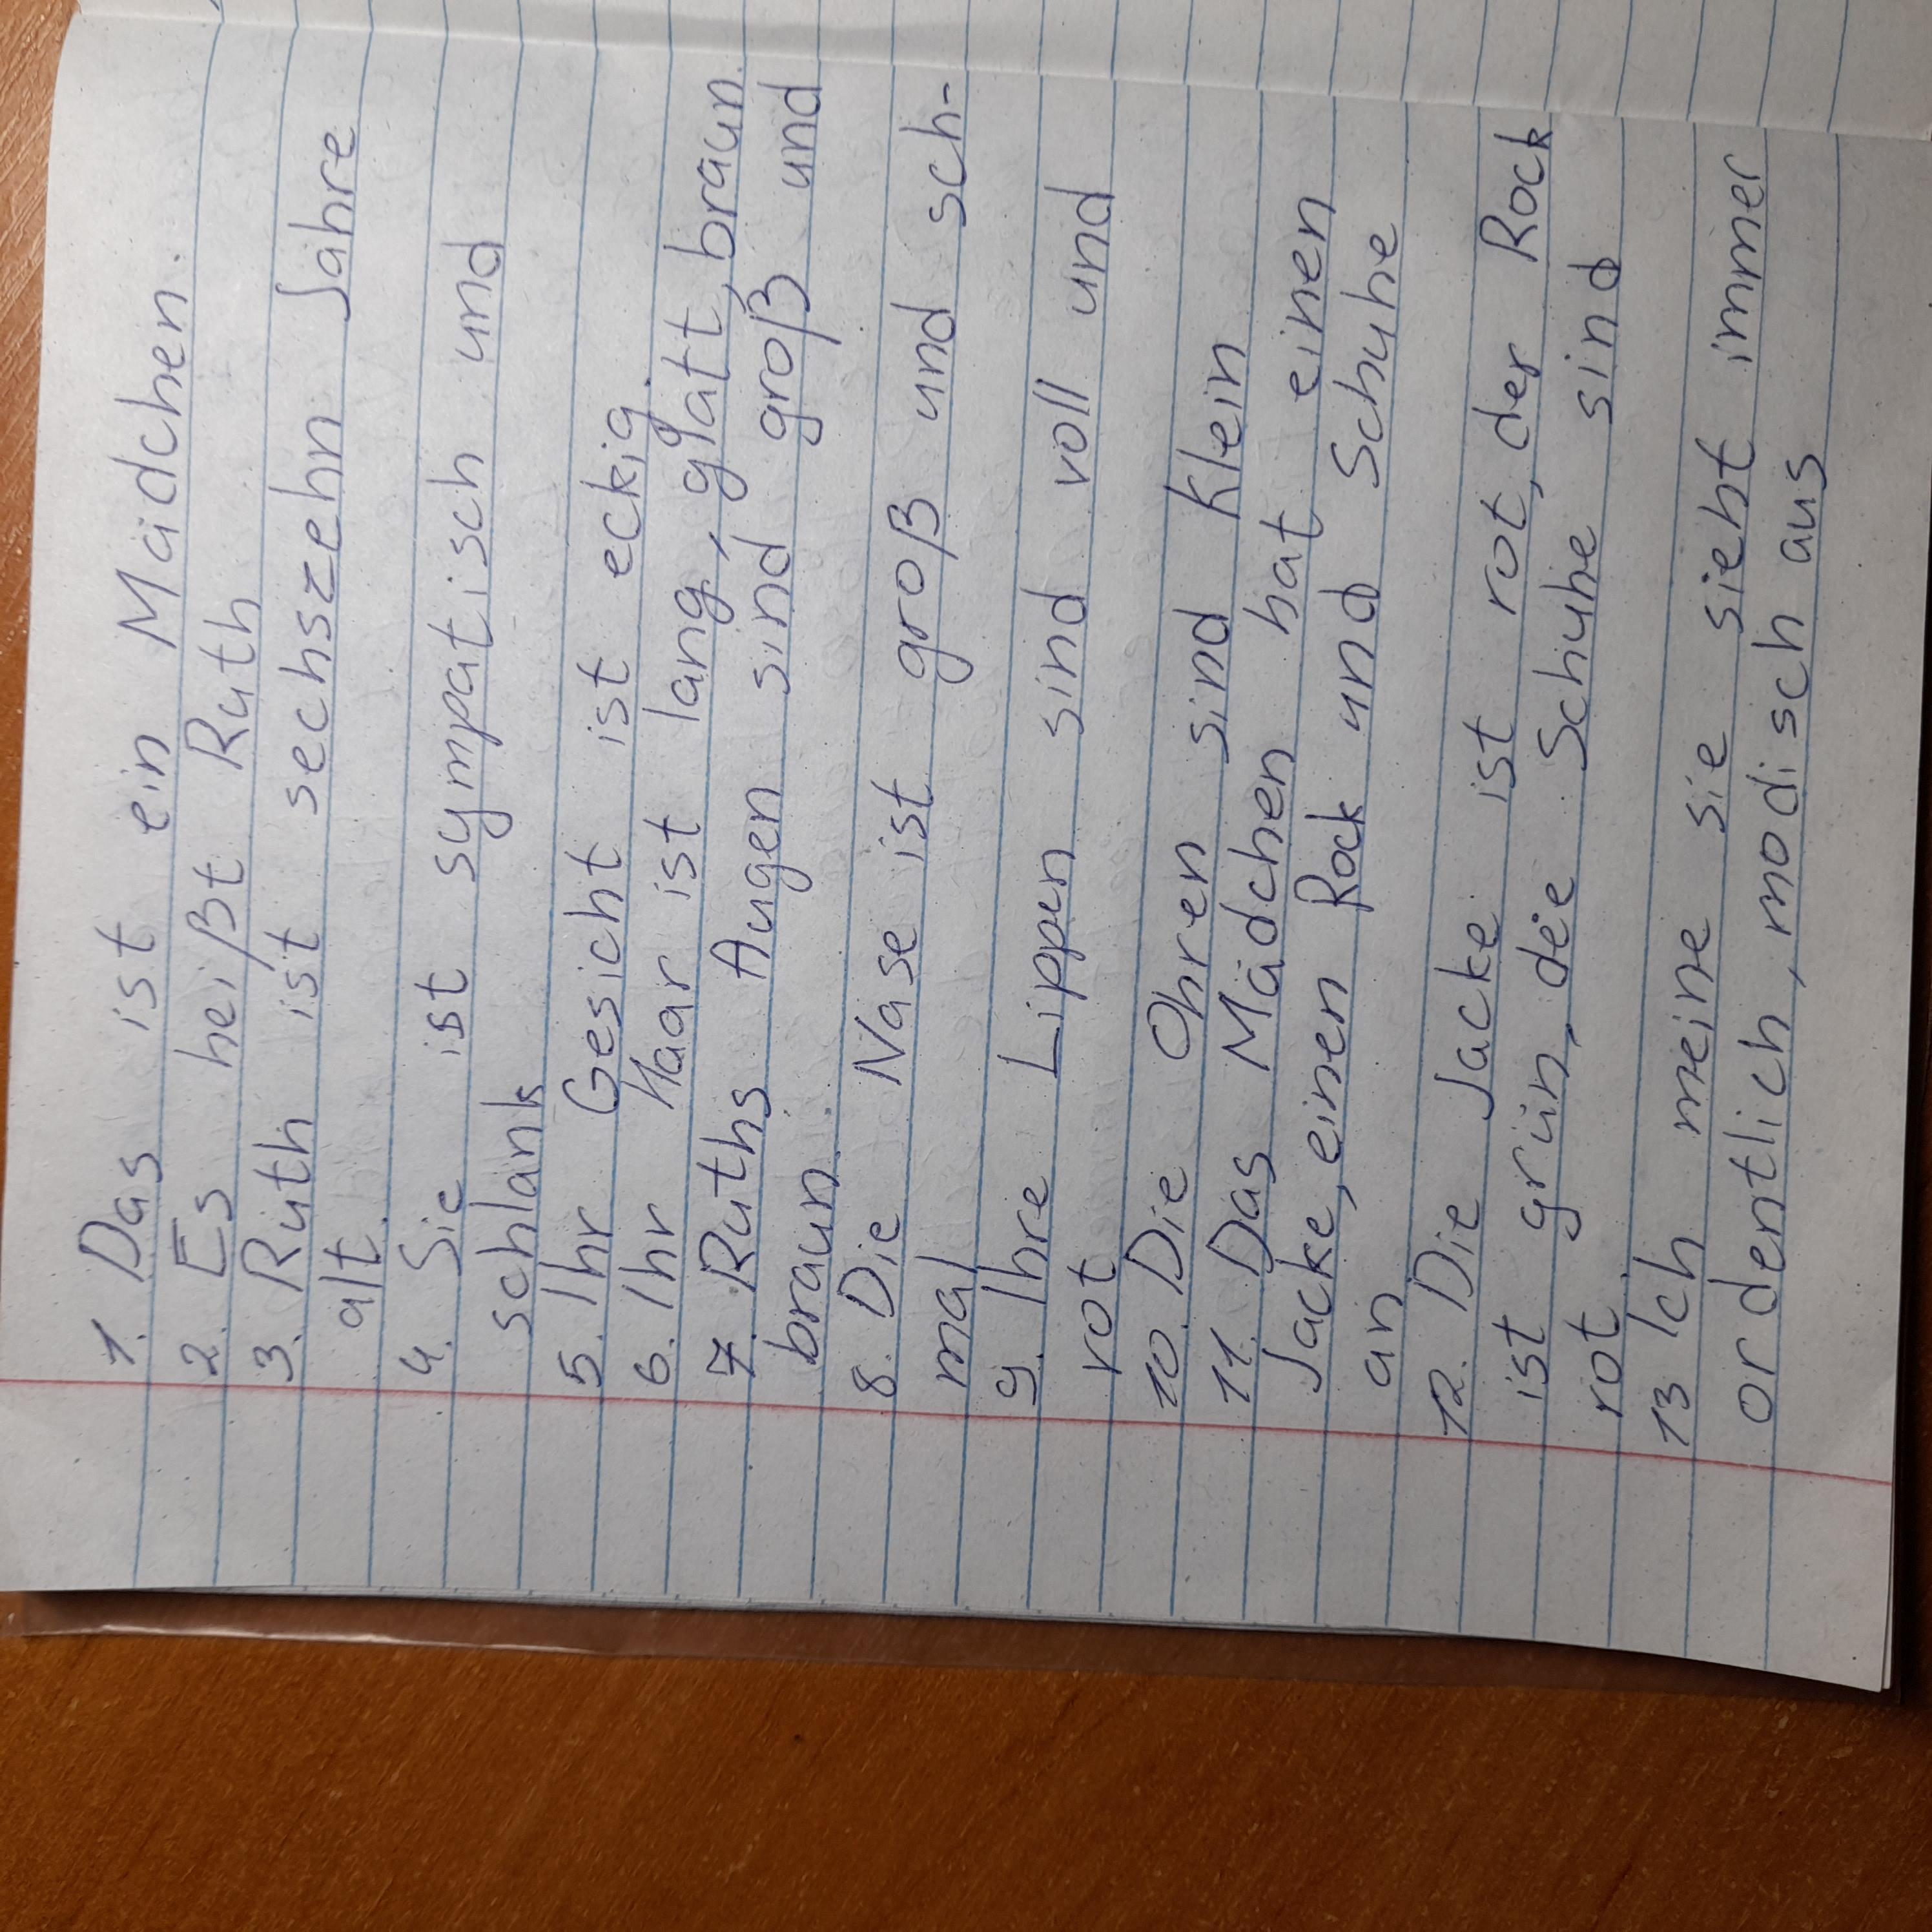 1. Das ist ein Mädchen.
2. Es heißt Ruth
3. Ruth ist sechszehn Jahre
alt.
4. Sie ist sympatisch und
schlank
5. Ihr Gesicht ist eckig.
6. Ihr Haar ist lang, glatt, braun.
7. Ruths Augen sind groß und
braun.
8. Die Nase ist groß und sch-
mal
9. Ihre Lippen sind voll und
rot
10. Die Ohren sind klein
11. Das Mädchen hat einen
Jacke, einen Rock und Schuhe
an
12. Die Jacke ist rot, der Rock
ist grün, die Schuhe sind
rot.
13 Ich meine sie sieht immer
ordentlich, modisch aus